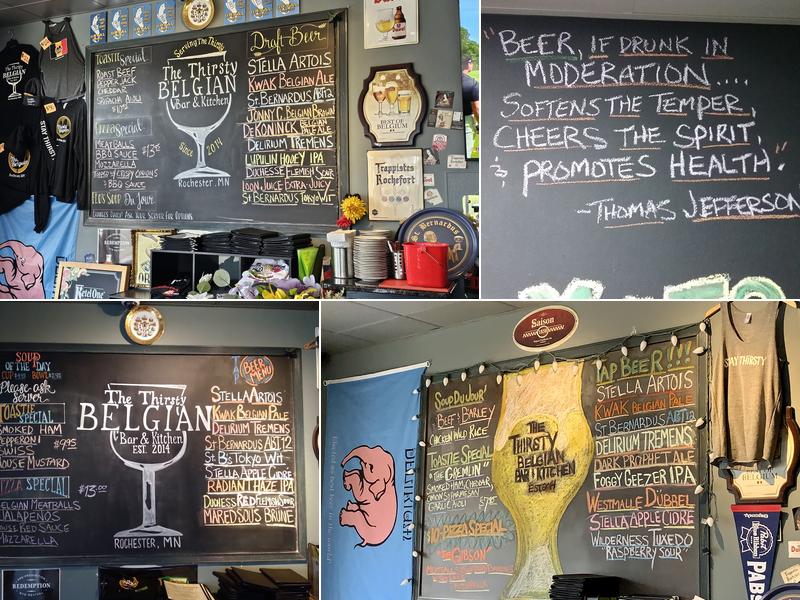 Toastie Special
ROAST BEEF
PEPPER JACK
CHEDDAR
SRIRACHA AIOLI
Pizza Special
MEATBALLS
BBQ SAUCE
MOZZARELLA
TOPPED W/ CRISPY ONIONS
& BBQ SAUCE
Serving The Thirsty
The Thirsty
BELGIAN
Bar & Kitchen
Since 2014
Rochester, MN
Draft Beer
STELLA ARTOIS
KWAK BELGIAN ALE
ST. BERNARDUS ABT 12
JONNY C. BELGIAN BROWN
DE KONINCK BELGIAN PALE ALE
DELIRIUM TREMENS
LUPULIN HONEY IPA
DUCHESSE FLEMISH SOUR
LOON JUICE EXTRA JUICY
ST BERNARDUS TOKYO WIT
BEST OF
BELGIUM
Trappistes
Rochefort
St. Bernardus
Ketel One
STAY THIRSTY
"BEER, IF DRUNK IN
MODERATION....
SOFTENS THE TEMPER,
CHEERS THE SPIRIT,
& PROMOTES HEALTH."
-THOMAS JEFFERSON
SOUP
OF THE DAY
CUP
BOWL
Please ask
server
TOASTIE
SPECIAL
SMOKED HAM
PEPPERONI
SWISS
HOUSE MUSTARD
$9.95
PIZZA SPECIAL
$13.00
BELGIAN MEATBALLS
JALAPEÑOS
HOUSE RED SAUCE
MOZZARELLA
The Thirsty
BELGIAN
Bar & Kitchen
EST. 2014
ROCHESTER, MN
BEER
MENU
STELLA ARTOIS
KWAK BELGIAN PALE
DELIRIUM TREMENS
ST BERNARDUS ABT 12
ST B's TOKYO WIT
STELLA APPLE CIDRE
RADIANT HAZE IPA
MAREDSOUS BRUNE
REDEMPTION
Saison
DELIRIUM
SOUP DU JOUR
BEEF & BARLEY
CHICKEN WILD RICE
TOASTIE SPECIAL
"THE GREMLIN"
SMOKED HAM, CHEDDAR,
ONIONS, PARMESAN
GARLIC AIOLI
10" PIZZA SPECIAL
"THE GIBSON"
THE
THIRSTY
BELGIAN
BAR & KITCHEN
EST 2014
TAP BEER!!!
STELLA ARTOIS
KWAK BELGIAN PALE
ST BERNARDUS ABT 12
DELIRIUM TREMENS
DARK PROPHET ALE
FOGGY GEEZER I.P.A
WESTMALLE DUBBEL
STELLA APPLE CIDRE
WILDERNESS TUXEDO
"RASPBERRY SOUR"
STAY THIRSTY
PABS